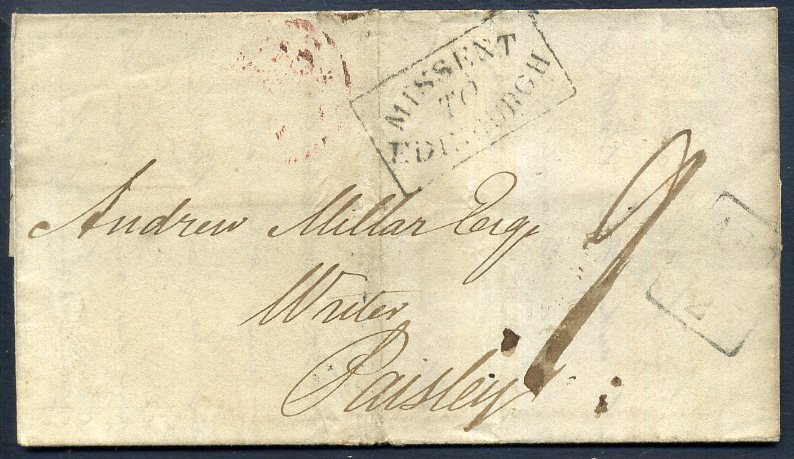 MISSENT
TO
EDINBURGH
Andrew Millar Esqr
Writer
Paisley